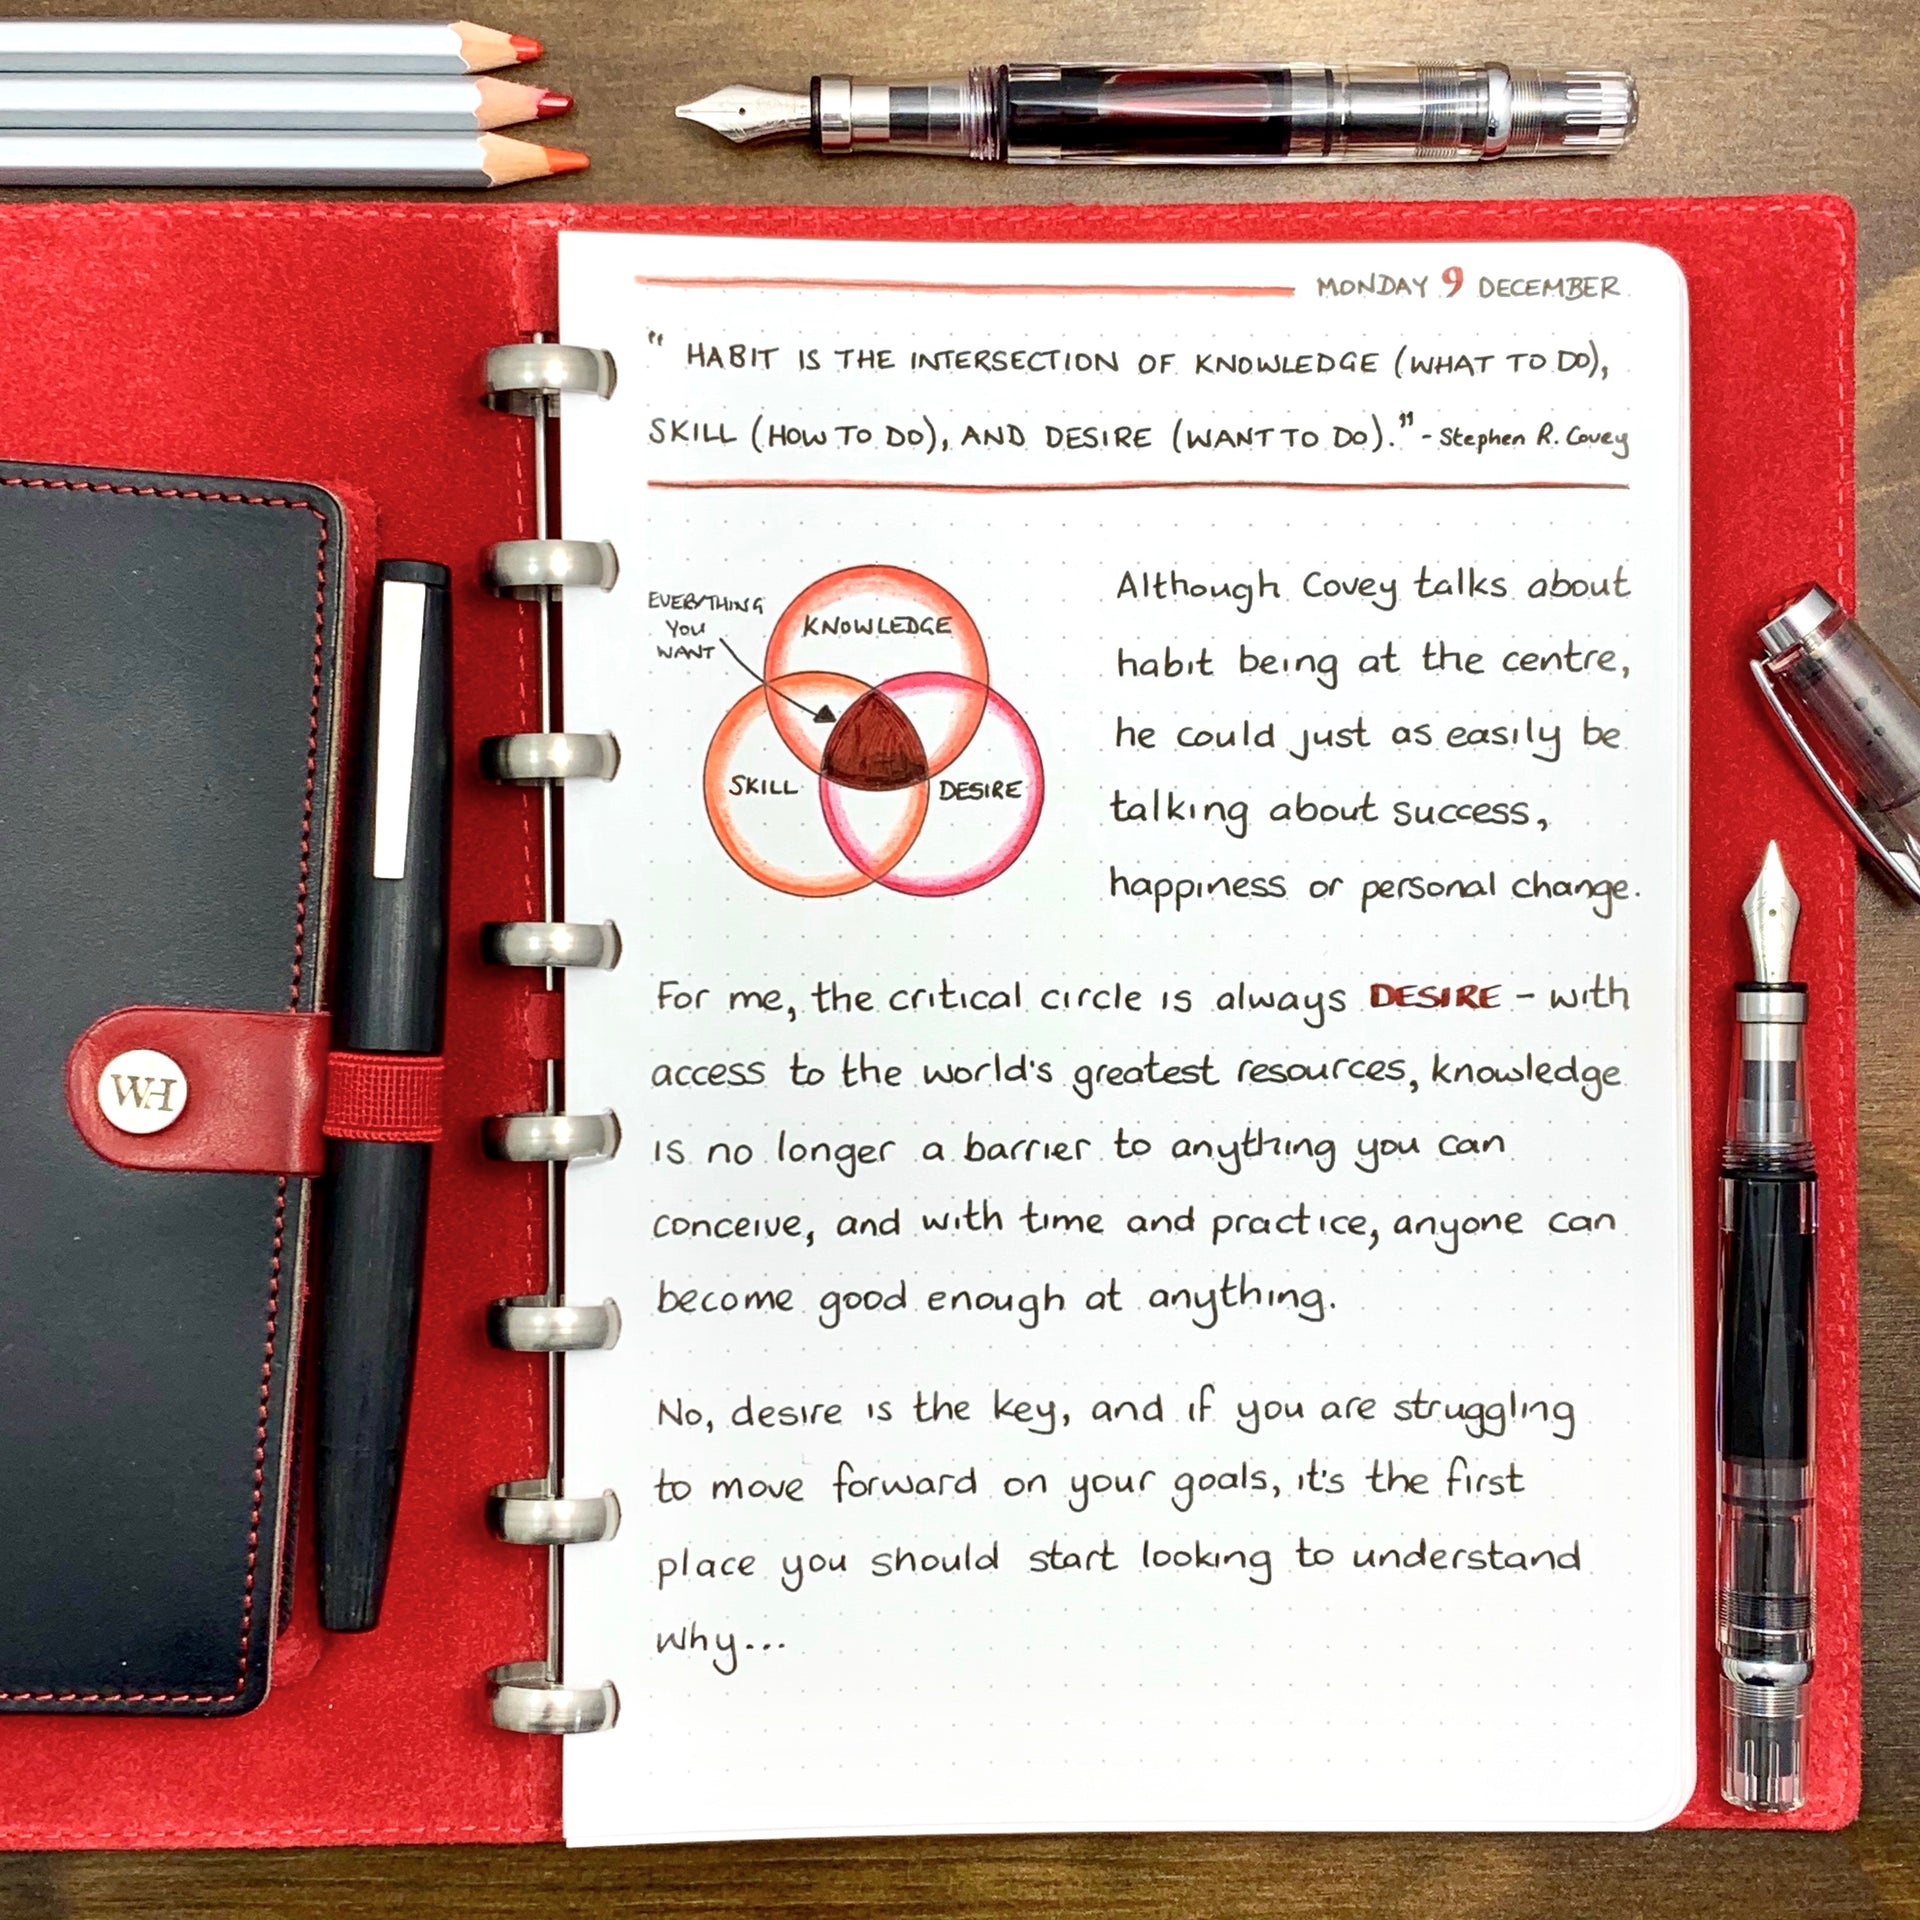 MONDAY 9 DECEMBER
" HABIT IS THE INTERSECTION OF KNOWLEDGE (WHAT TO DO),
SKILL (HOW TO DO), AND DESIRE (WANT TO DO)." - Stephen R. Covey
EVERYTHING
YOU
WANT
KNOWLEDGE
SKILL
DESIRE
Although Covey talks about
habit being at the centre,
he could just as easily be
talking about success,
happiness or personal change.
For me, the critical circle is always DESIRE - with
access to the world's greatest resources, knowledge
is no longer a barrier to anything you can
conceive, and with time and practice, anyone can
become good enough at anything.
No, desire is the key, and if you are struggling
to move forward on your goals, it's the first
place you should start looking to understand
why...
WH